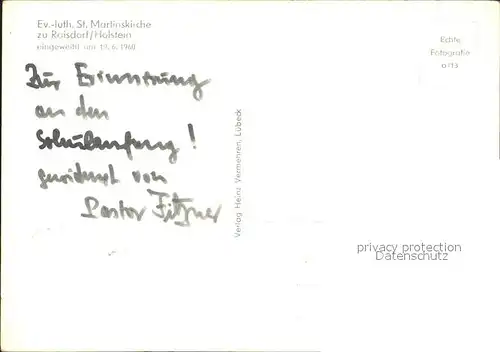 Ev.-luth. St. Martinskirche
zu Raisdorf/Holstein
eingeweiht am 19. 6. 1960
Zur Erinnerung
an den
Schulanfang!
gewidmet von
Pastor Fitzner
Verlag Heinz Vermehren, Lübeck
Echte
Fotografie
privacy protection
Datenschutz